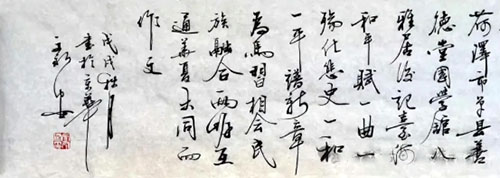 菏泽市单县善
德堂国学馆八
雅居后记袁河
和平赋一曲一
缘化悲史一和
一平谱新章
为马习相会民
族融合两岸互
通华夏大同而
作文
戊戌秋月
书于京华